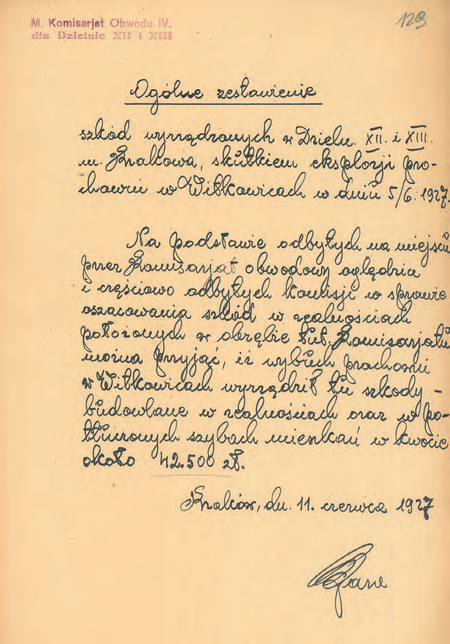 M. Komisarjat Obwodu IV.
dla Dzielnic XII i XIII
129
Ogólne zestawienie
szkód wyrządzonych w Dzieln. XII. i XIII.
m. Krakowa, skutkiem eksplozji pro-
chowni w Witkowicach w dniu 5/6. 1927.
Na podstawie odbytych na miejscu
przez Komisarjat obwodowy oględzin
i częściowo odbytych komisji w sprawie
oszacowania szkód w realnościach
położonych w obrębie tut. Komisarjatu
można przyjąć, iż wybuch prochowni
w Witkowicach wyrządził tu szkody -
budowlane w realnościach oraz w po-
tłuczonych szybach mieszkań w kwocie
około 42.500 zł.
Kraków, dn. 11. czerwca 1927